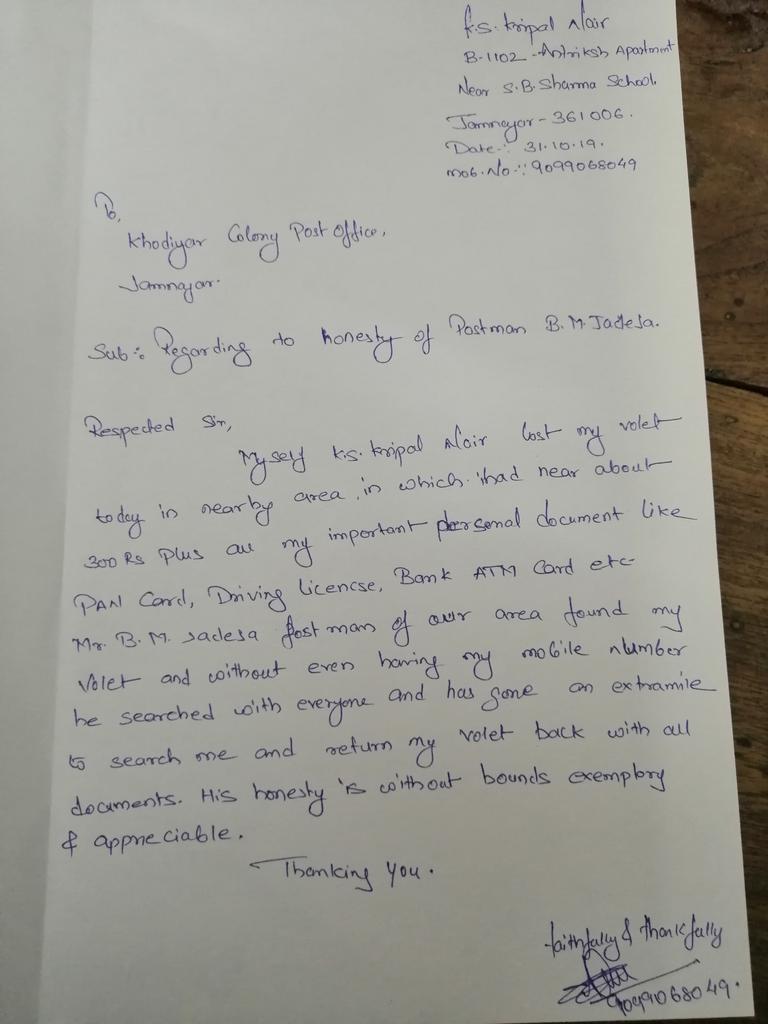 K.S. Kripal Nair
B-1102 - Antriksh Apartment
Near S.B. Sharma School.
Jamnagar - 361006.
Date:- 31.10.19.
Mob. No.:: 9099068049
To,
Khodiyar Colony Post Office,
Jamnagar.
Sub:- Regarding to honesty of Postman B.M. Jadeja.
Respected Sir,
My self K.S. Kripal Nair lost my volet
today in nearby area, in which ihad near about
300 Rs plus all my important personal document like
PAN Card, Driving licencse, Bank ATM Card etc
Mr. B.M. Jadeja Postman of our area found my
volet and without even having my mobile number
he searched with everyone and has gone an extramile
to search me and return my volet back with all
documents. His honesty is without bounds exemplory
& appreciable.
Thanking You.
faithfully & thankfully
9099068049.